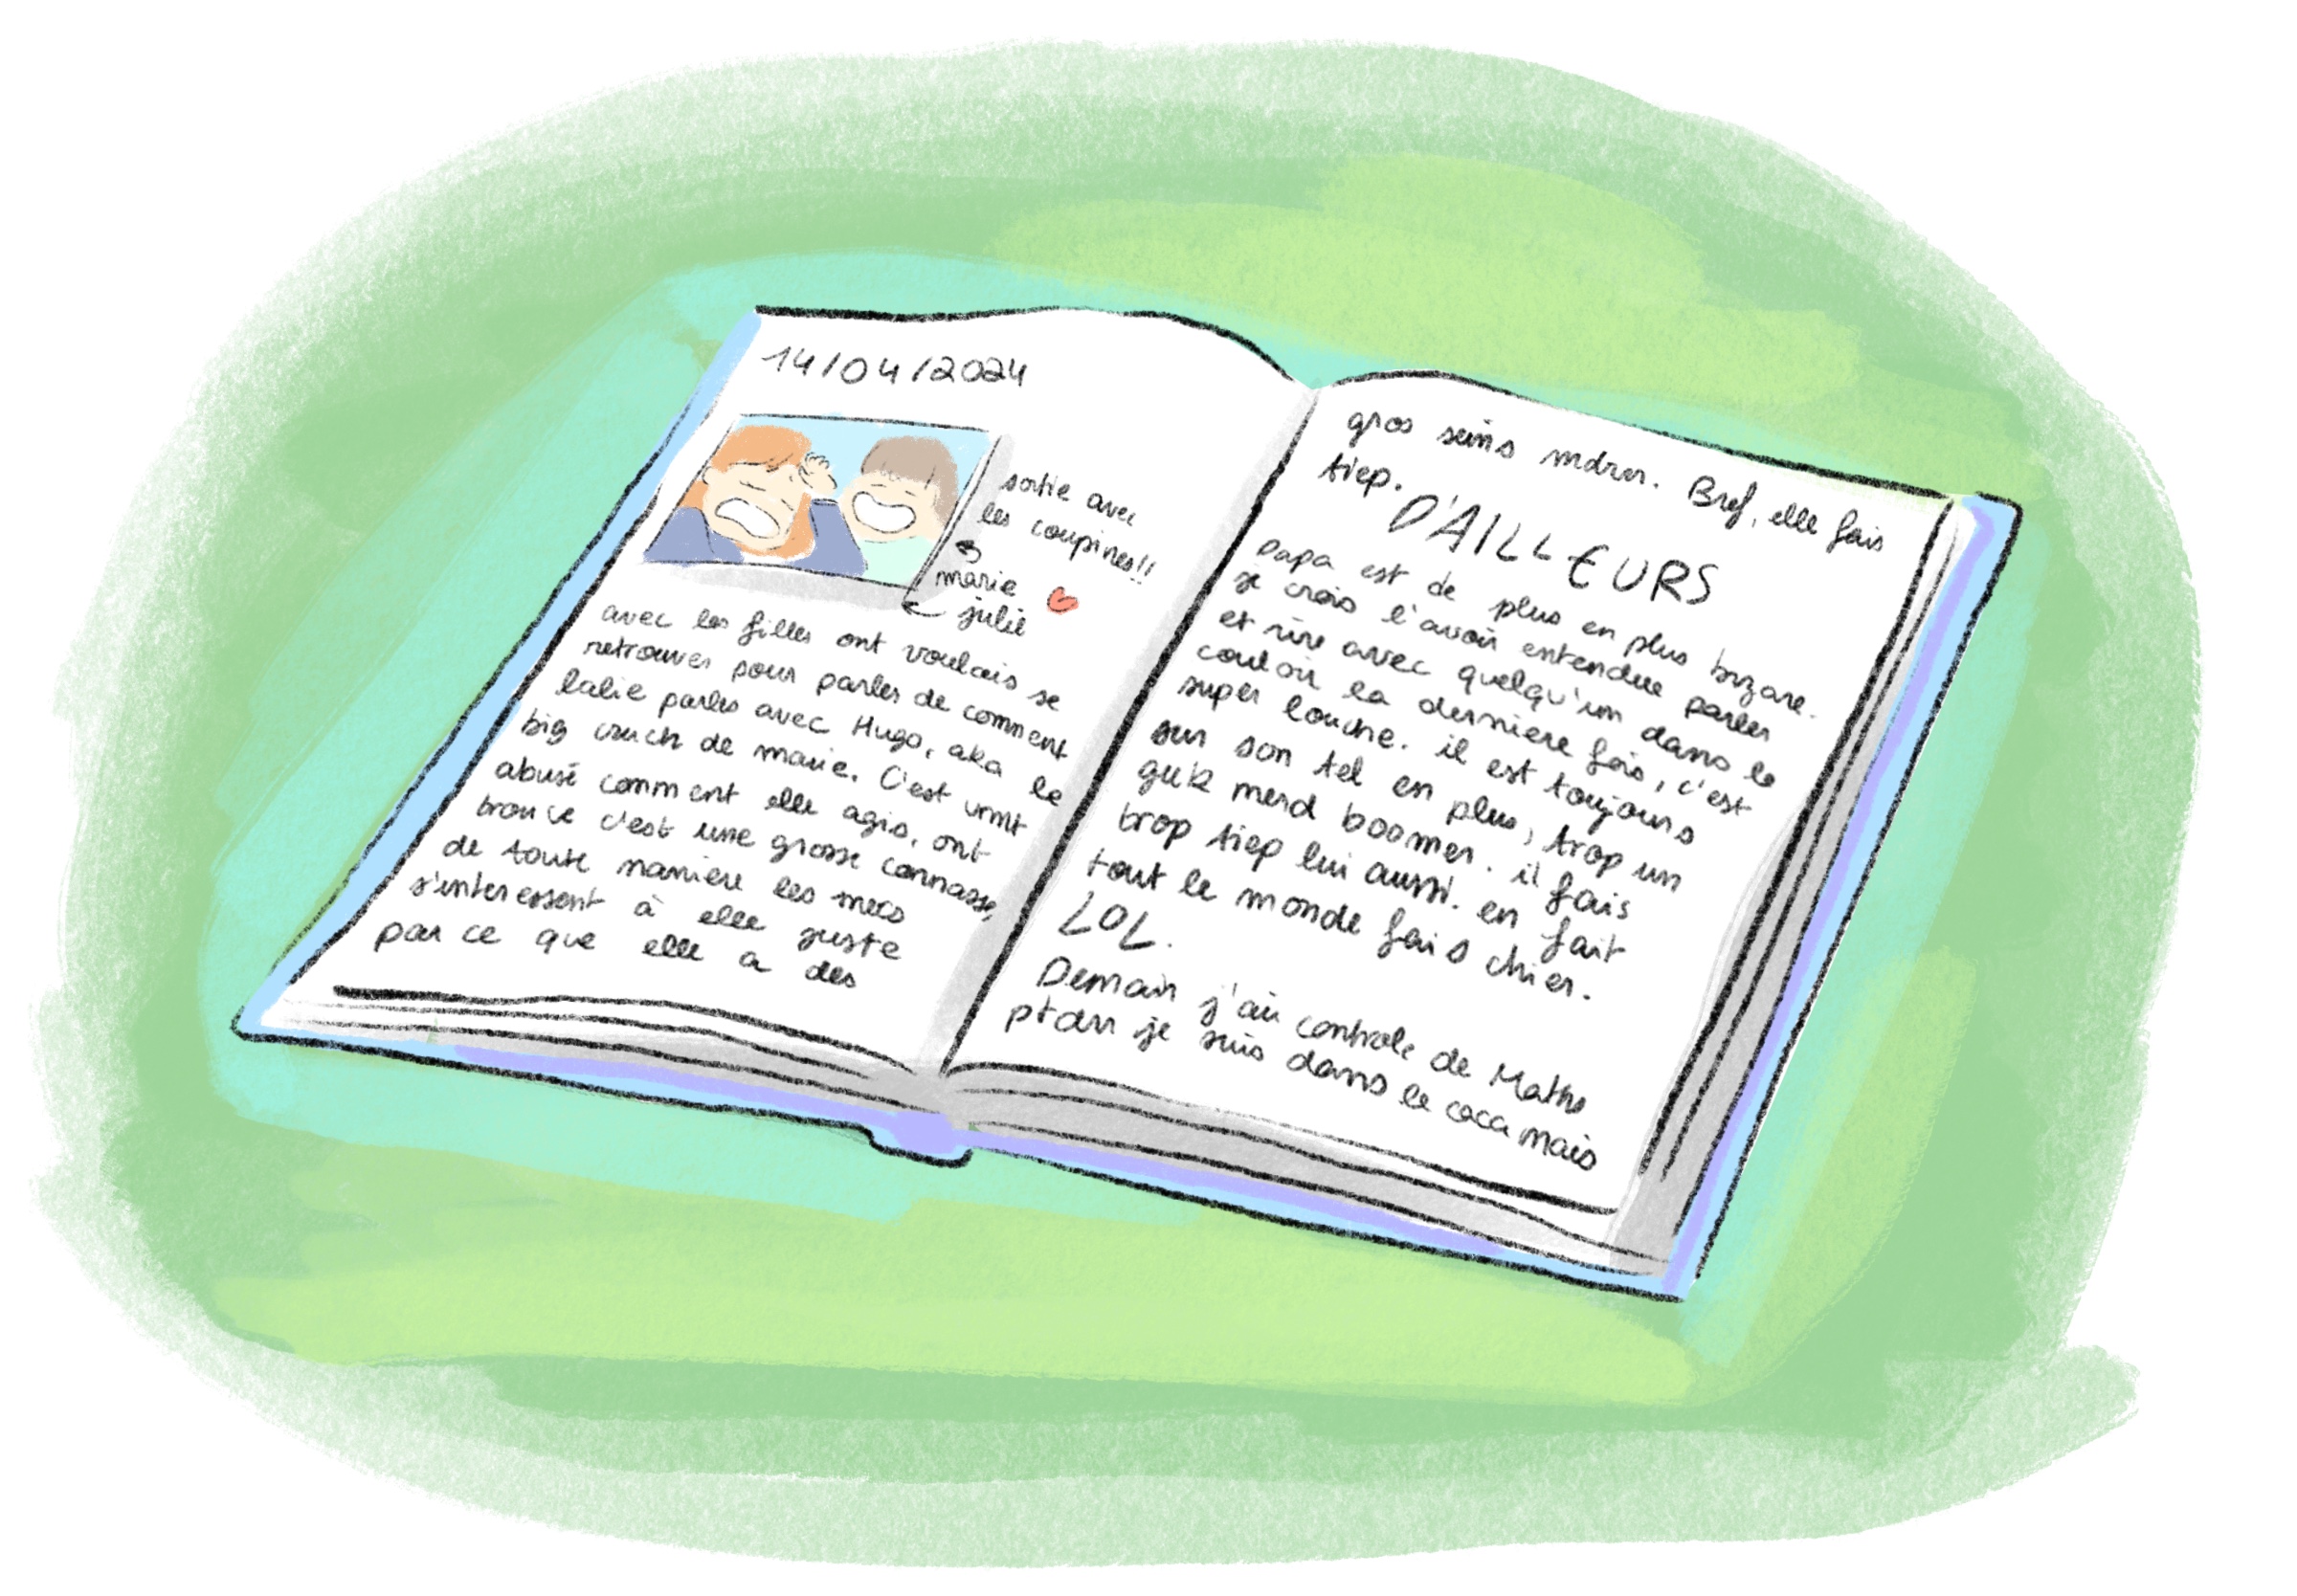 14/04/2024
sortie avec
les coupines!!
marie
julie
avec les filles ont voulais se
retrouver pour parler de comment
lalie parles avec Hugo, aka le
big cruch de marie. C'est vrmt
abusé comment elle agis. ont
trouve c'est une grosse connasse,
de toute maniere les mecs
s'interessent à elle juste
par ce que elle a des
gros seins mdrrr. Bref, elle fais
tiep.
D'AILLEURS
papa est de plus en plus bizare.
je crois l'avoir entendue parler
et rire avec quelqu'un dans le
couloir la derniere fois, c'est
super louche. il est toujours
sur son tel en plus, trop un
merd boomer. il fais
trop tiep lui aussi. en fait
tout le monde fais chier.
LOL.
Demain j'ai controle de Maths
ptdrr je suis dans le caca mais